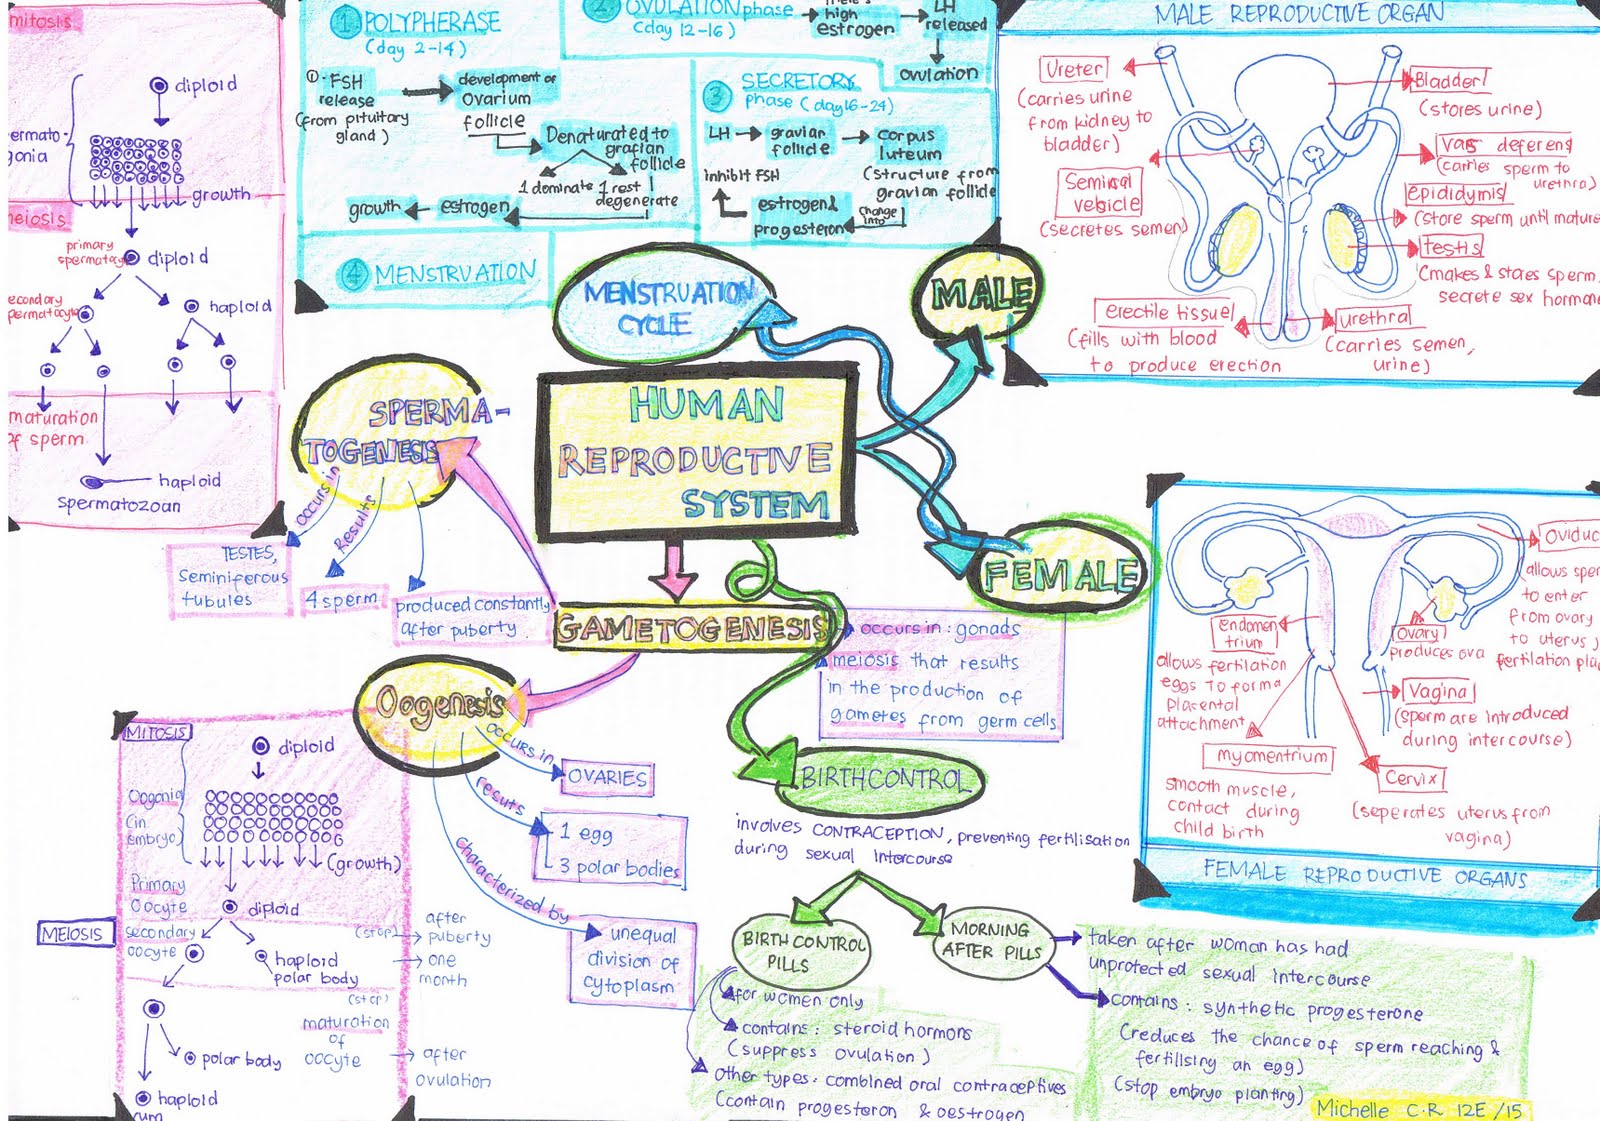 mitosis
diploid
ermato-
gonia
growth
meiosis
primary
spermatocy
diploid
econdary
permatocyte
haploid
maturation
of sperm
haploid
spermatozoan
1 POLYPHERASE
(day 2-14)
① FSH
release
(from pituitary
gland)
development of
Ovarium
follicle
Denaturated to
grafian
follicle
1 dominate
1 rest
degenerate
estrogen
growth
2 OVULATION phase
(day 12-16)
there's
high
estrogen
LH
released
ovulation
3 SECRETORY
phase (day 16-24)
LH
gravian
follicle
corpus
luteum
(structure from
gravian follicle
change
into
estrogen &
progesteron
inhibit FSH
4 MENSTRUATION
MENSTRUATION
CYCLE
MALE
MALE REPRODUCTIVE ORGAN
Ureter
(carries urine
from kidney to
bladder)
Seminal
vebicle
(secretes semen)
erectile tissue
(fills with blood
to produce erection
Bladder
(stores urine)
Vas deferens
(carries sperm to
urethra)
epididymis
(store sperm until mature
testis
(makes & stores sperm,
secrete sex hormone
urethra
(carries semen,
urine)
HUMAN
REPRODUCTIVE
SYSTEM
SPERMA-
TOGENESIS
occurs in
TESTES,
seminiferous
tubules
Results
4 sperm
produced constantly
after puberty
GAMETOGENESIS
occurs in: gonads
meiosis that results
in the production of
gametes from germ cells
FEMALE
Oviduc
allows sper
to enter
from ovary
to uterus,
fertilation pla
endomen
trium
allows fertilation
eggs to form a
placental
attachment
Ovary
produces ova
Vagina
(sperm are introduced
during intercourse)
myomentrium
smooth muscle,
contact during
child birth
Cervix
(seperates uterus from
vagina)
FEMALE REPRODUCTIVE ORGANS
Oogenesis
occurs in
OVARIES
resuts
1 egg
3 polar bodies
characterized by
unequal
division of
cytoplasm
MITOSIS
diploid
Oogonia
(in
embryo)
(growth)
Primary
Oocyte
diploid
MEIOSIS
secondary
oocyte
(stop)
after
puberty
one
month
haploid
polar body
(stop)
maturation
of
oocyte
after
ovulation
polar body
haploid
um
BIRTH CONTROL
involves CONTRACEPTION, preventing fertilisation
during sexual intercourse
BIRTH CONTROL
PILLS
for women only
contains: steroid hormons
(suppress ovulation)
other types: combined oral contraceptives
(contain progesteron & oestrogen
MORNING
AFTER PILLS
taken after woman has had
unprotected sexual intercourse
contains: synthetic progesterone
(reduces the chance of sperm reaching &
fertilising an egg)
(stop embryo planting)
Michelle C.R 12E/15